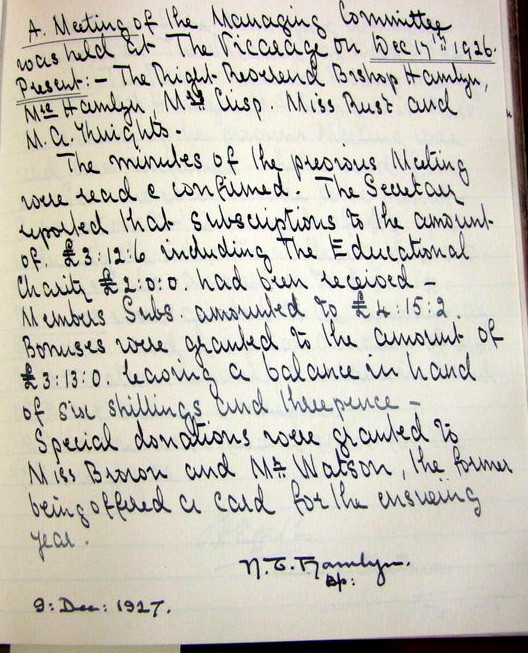 A. Meeting of the Managing Committee
was held at The Vicarage on Dec 17th 1926.
Present:- The Right Reverend Bishop Hamlyn,
Mrs Hamlyn, Mrs Crisp. Miss Rust and
M.A. Knights.
The minutes of the previous Meeting
were read & confirmed. The Secretary
reported that subscriptions to the amount
of. £3:12:6 including The Educational
Charity £2:0:0. had been received -
Members Subs. amounted to £4:15:2.
Bonuses were granted to the amount of
£3:13:0. leaving a balance in hand
of six shillings and threepence -
Special donations were granted to
Miss Brown and Mr Watson, the former
being offered a card for the ensueing
year.
N. T. Hamlyn.
Bp:
9: Dec: 1927.